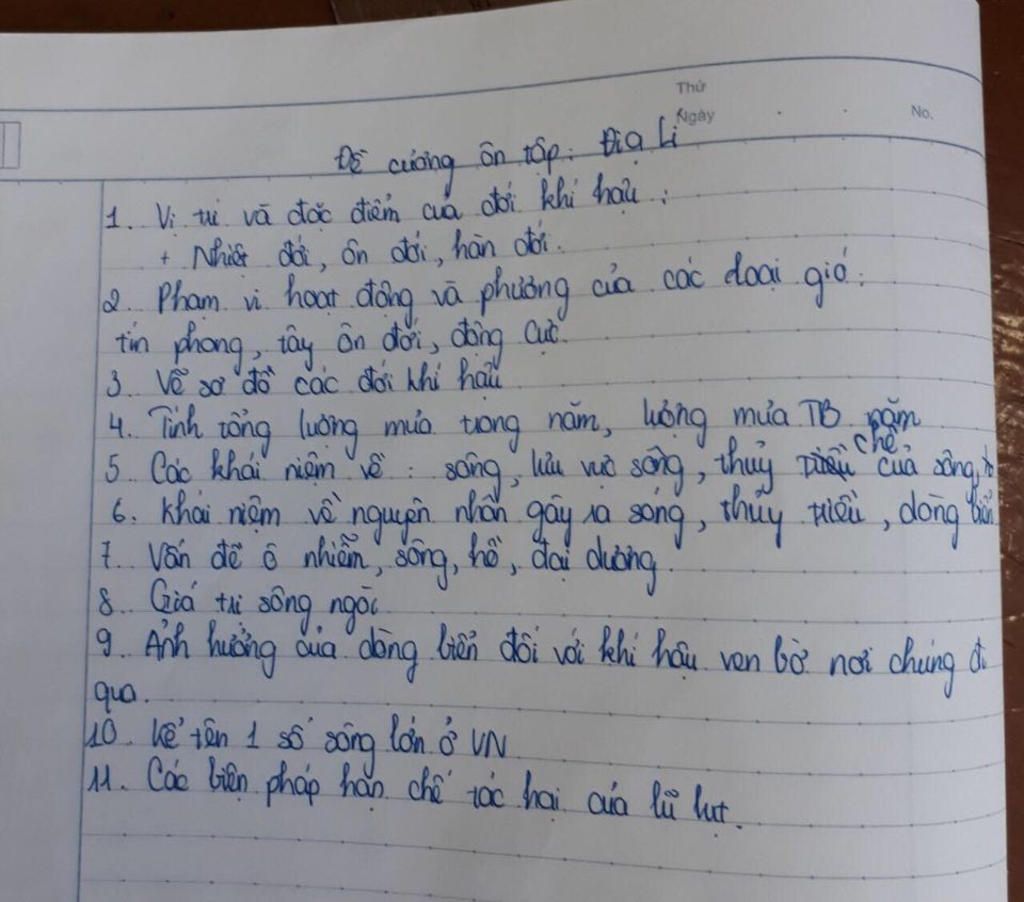 Thứ
Ngày
No.
Đề cương ôn tập: Địa Lí
1. Vị trí và đặc điểm của đới khí hậu:
+ Nhiệt đới, ôn đới, hàn đới.
2. Phạm vi hoạt động và phương của các loại gió:
tín phong, tây ôn đới, đông cực.
3. Vẽ sơ đồ các đới khí hậu
4. Tính tổng lượng mưa trong năm, lượng mưa TB năm
5. Các khái niệm về: sông, lưu vực sông, thủy chế của sông,
6. Khái niệm về nguyên nhân gây ra sóng, thủy triều, dòng biển
7. Vấn đề ô nhiễm, sông, hồ, đại dương.
8. Giá trị sông ngòi
9. Ảnh hưởng của dòng biển đối với khí hậu ven bờ nơi chúng đi
qua.
10. Kể tên 1 số sông lớn ở VN
11. Các biện pháp hạn chế tác hại của lũ lụt.